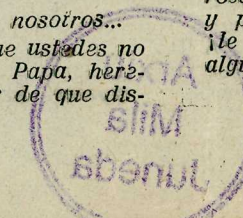 nosotros...
ue ustedes no
Papa, here-
r de que dis-
y p
¡le
algu
Arxiu
Mila
Juneda